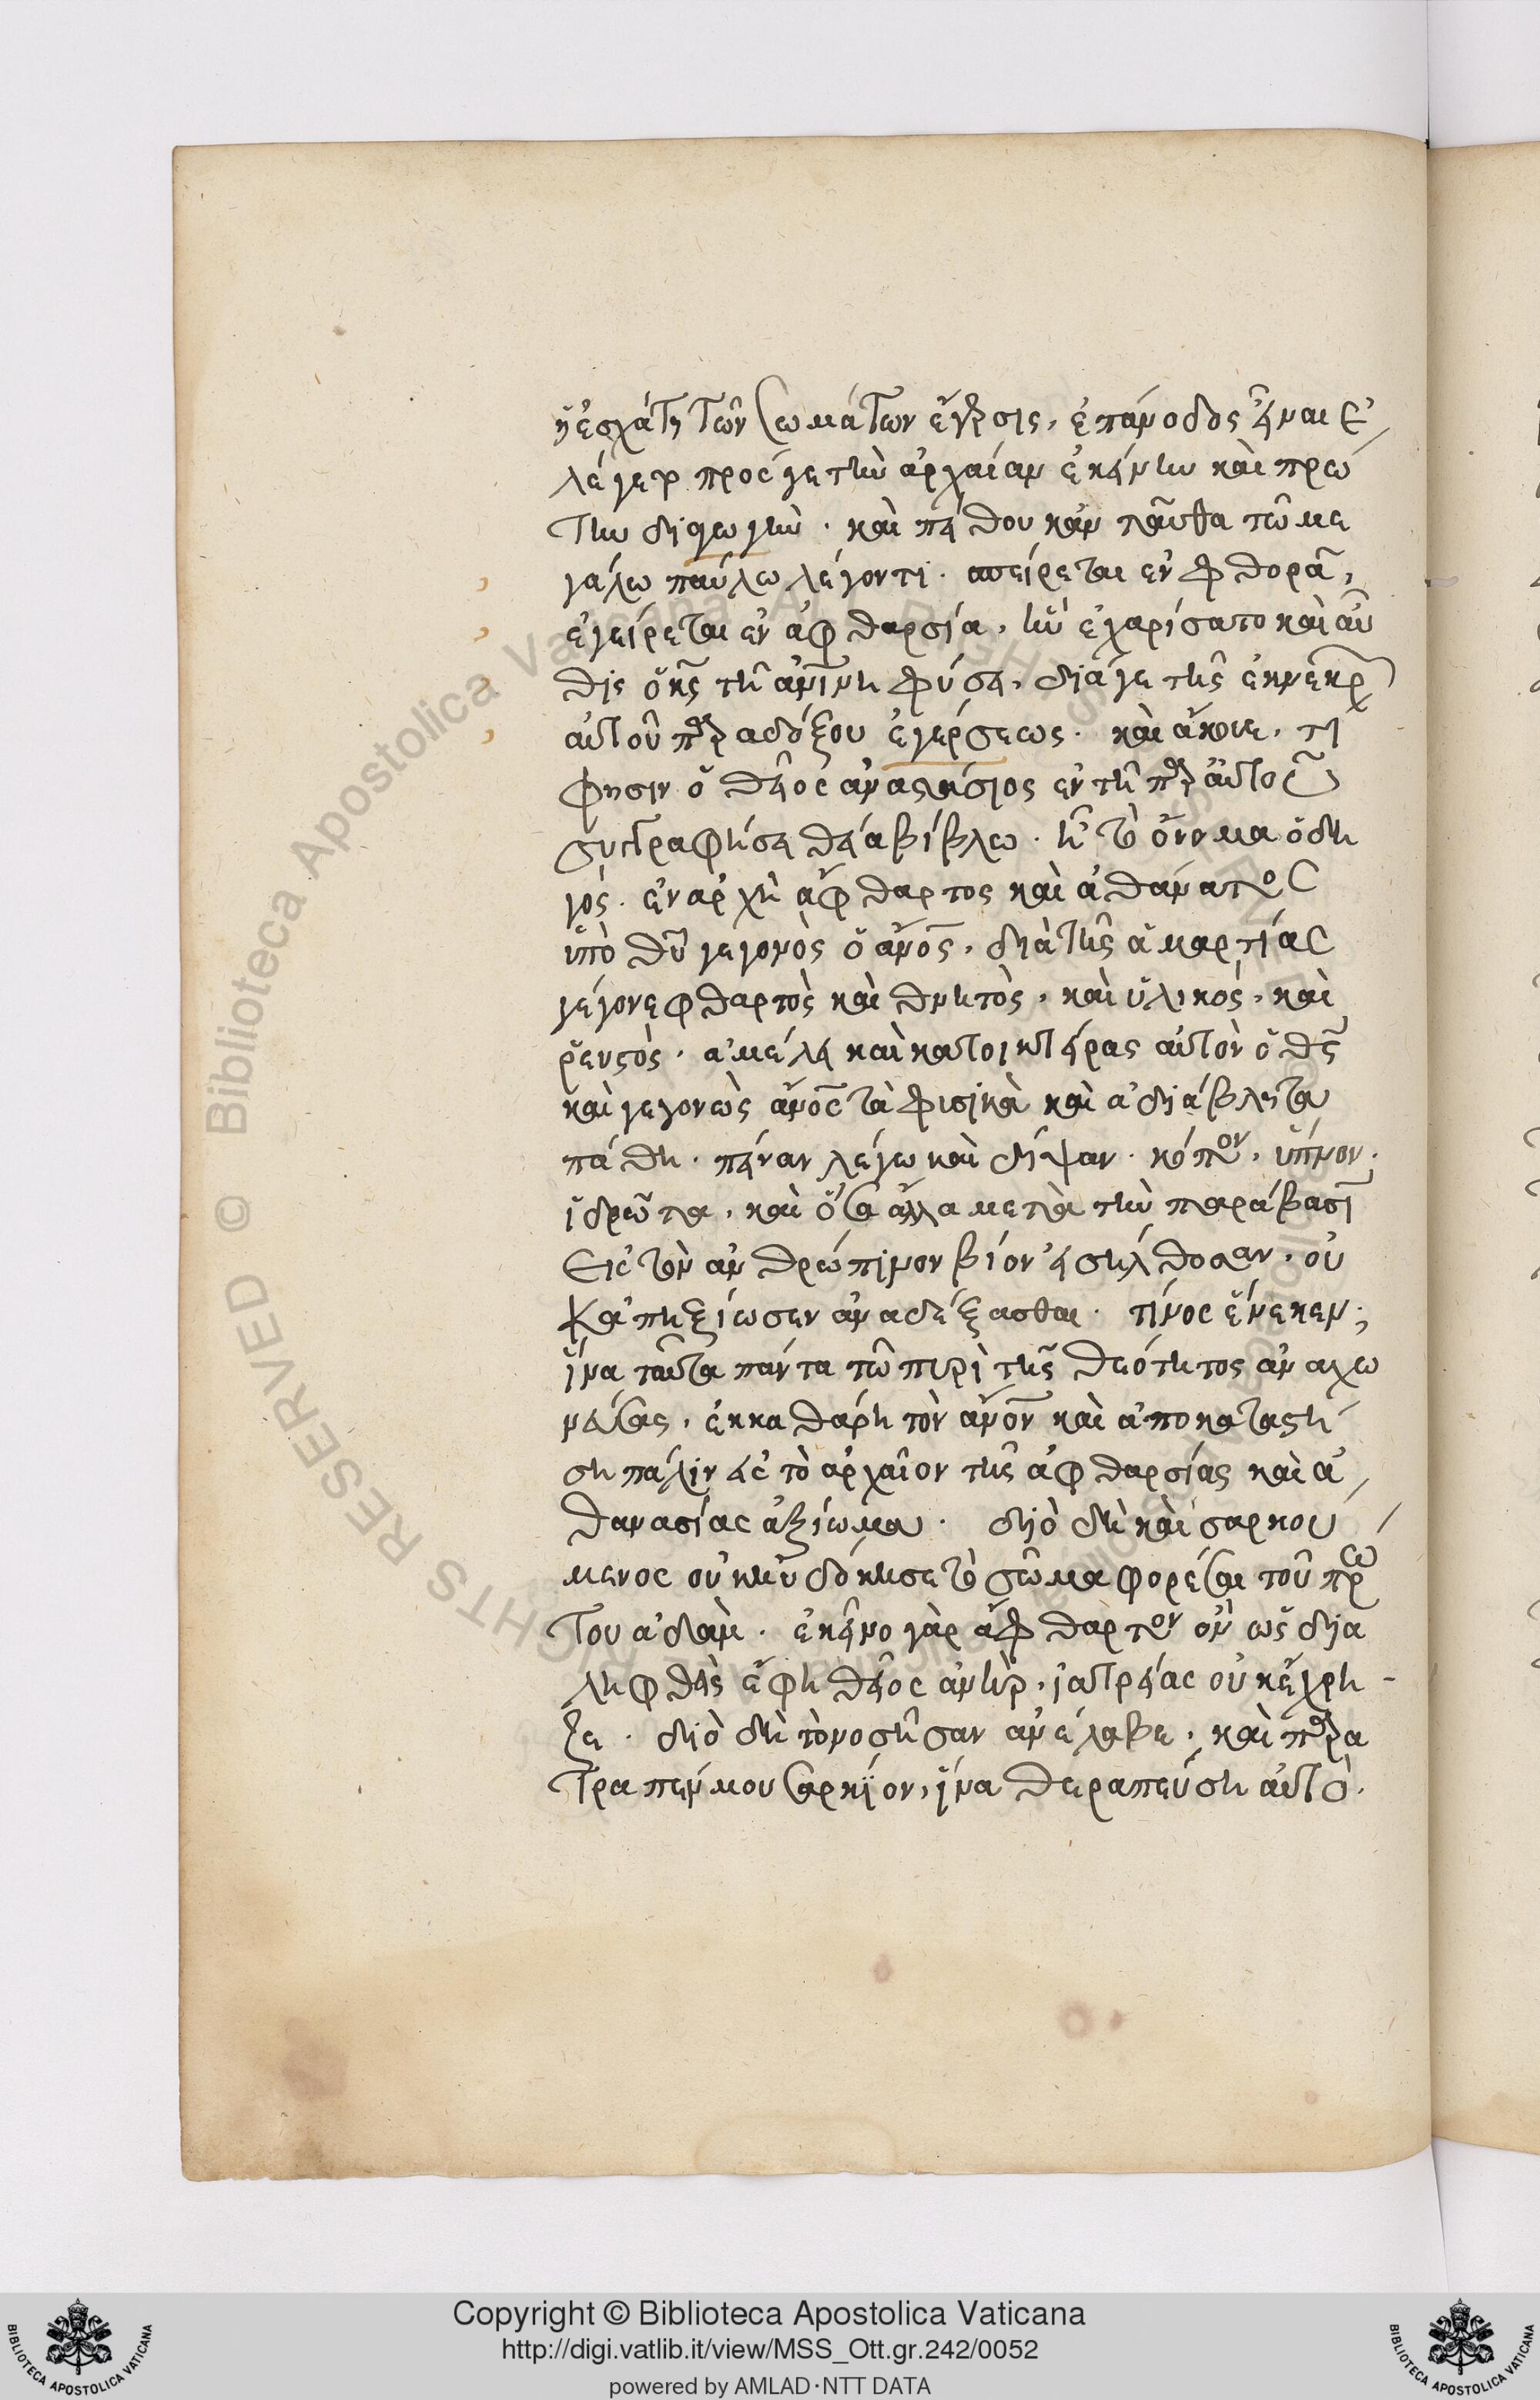 ἡ ἐσχάτη τῶν σωμάτων ἔγερσις, ἐπάνοδος εἶναι ἐ
λέγετο πρός γε τὴν ἀρχαίαν ἐκείνην καὶ πρώ
την διαγωγήν · καὶ πείθου κἀνταῦθα τῷ με
γάλω παύλω λέγοντι · σπείρεται ἐν φθορᾶ,
ἐγείρεται ἐν ἀφθαρσία, ἣν ἐχαρίσατο καὶ αὖ
θις ὁ κς τῆ ἀνίνη φύσει, διά γε τῆς ἐκ νεκρ
αὐτοῦ παραδόξου ἐγέρσεως · καὶ ἄκουε, τί
φησιν ὁ θεῖος ἀναστάσιος ἐν τῆ παρ αὐτοῦ
συγγραφείση θεία βίβλω · ἧ τὸ ὄνομα ὁδη
γός · ἐν ἀρχῆ ἄφθαρτος καὶ ἀθάνατος
ὑπὸ θυ γεγονὼς ὁ ἄνος, διὰ τῆς ἁμαρτίας
γέγονε φθαρτὸς καὶ θνητὸς, καὶ ὑλικός, καὶ
ῥευστὸς, ἀμέλει καὶ κατοικτείρας αὐτὸν ὁ θς
καὶ γεγονὼς ἄνος τὰ φυσικὰ καὶ ἀδιάβλητα
πάθη · πεῖναν λέγω καὶ δίψαν · κόπον, ὕπνον ·
ἱδρῶτα, καὶ ὅσα ἄλλα μετὰ τὴν παράβασι
εἰς τὸν ἀνθρώπινον βίον εἰσήλθοσαν, οὐ
κ ἀπηξίωσεν ἀναδέξασθαι · τίνος ἕνεκεν;
ἵνα ταῦτα πάντα τῷ πυρὶ τῆς θεότητος ἀναχω
νεύσας, ἐκκαθάρη τὸν ἄνον καὶ ἀποκαταστή
ση πάλιν εἰς τὸ ἀρχαῖον τῆς ἀφθαρσίας καὶ ἀ
θανασίας ἀξίωμα · διὸ δὴ καὶ σαρκού
μενος οὐκ ηὐδόκησε τὸ σῶμα φορέσαι τοῦ πρώ
του ἀδάμ · ἐκεῖνο γὰρ ἄφθαρτον ὂν ὡς δια
ληφθεὶς ἔφη θεῖος ἀνὴρ, ἰατρείας οὐκ ἔχρη
ζε · διὸ δὴ τὸ νοσῆσαν ἀνέλαβε, καὶ παρα
τραπὲν μου σαρκίον, ἵνα θεραπεύση αὐτὸ.
Copyright © Biblioteca Apostolica Vaticana
http://digi.vatlib.it/view/MSS_Ott.gr.242/0052
powered by AMLAD·NTT DATA